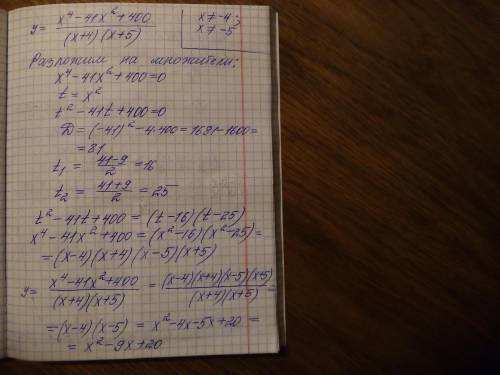 y = x⁴-41x²+400 / (x+4)(x+5)
x ≠ -4;
x ≠ -5
Разложим на множители:
x⁴-41x²+400=0
t = x²
t²-41t+400=0
D = (-41)²-4·400 = 1681-1600 =
= 81
t₁ = 41-9 / 2 = 16
t₂ = 41+9 / 2 = 25
t²-41t+400 = (t-16)(t-25)
x⁴-41x²+400 = (x²-16)(x²-25) =
= (x-4)(x+4)(x-5)(x+5)
y = x⁴-41x²+400 / (x+4)(x+5) = (x-4)(x+4)(x-5)(x+5) / (x+4)(x+5) =
= (x-4)(x-5) = x²-4x-5x+20 =
= x²-9x+20